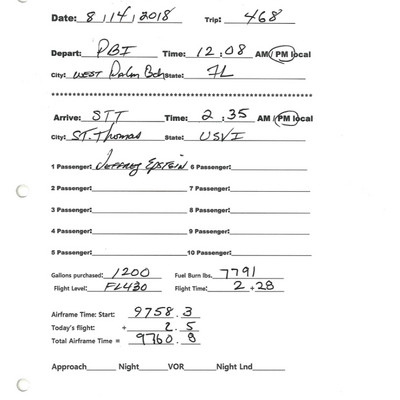 Date: 8/14/2018 Trip: 468
Depart: PBI Time: 12:08 AM/PM local
City: WEST Palm Bch State: FL
Arrive: STT Time: 2:35 AM/PM local
City: ST. Thomas State: USVI
1 Passenger: Jeffrey Epstein 6 Passenger:
2 Passenger: 7 Passenger:
3 Passenger: 8 Passenger:
4 Passenger: 9 Passenger:
5 Passenger: 10 Passenger:
Gallons purchased: 1200 Fuel Burn lbs. 7791
Flight Level: FL430 Flight Time: 2 + 28
Airframe Time: Start: 9758.3
Today's flight: + 2.5
Total Airframe Time = 9760.8
Approach Night VOR Night Lnd